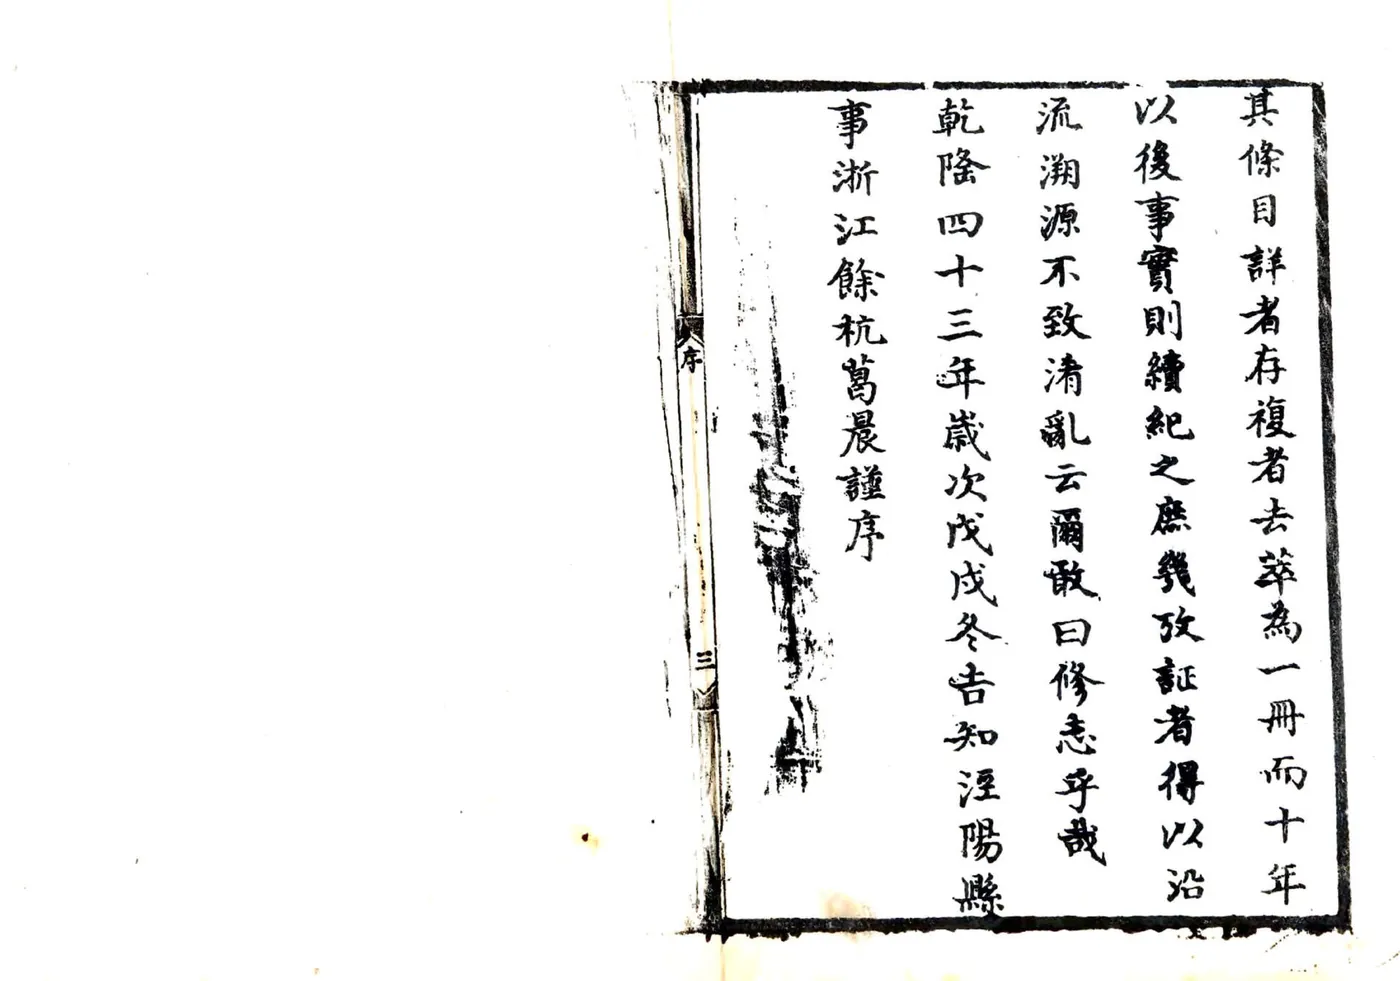 其條目詳者存複者去萃為一冊而十年
以後事實則續紀之庶幾攷証者得以沿
流溯源不致淆亂云爾敢曰修志乎哉
乾隆四十三年歲次戊戌冬吉知涇陽縣
事浙江餘杭葛晨謹序
序
三